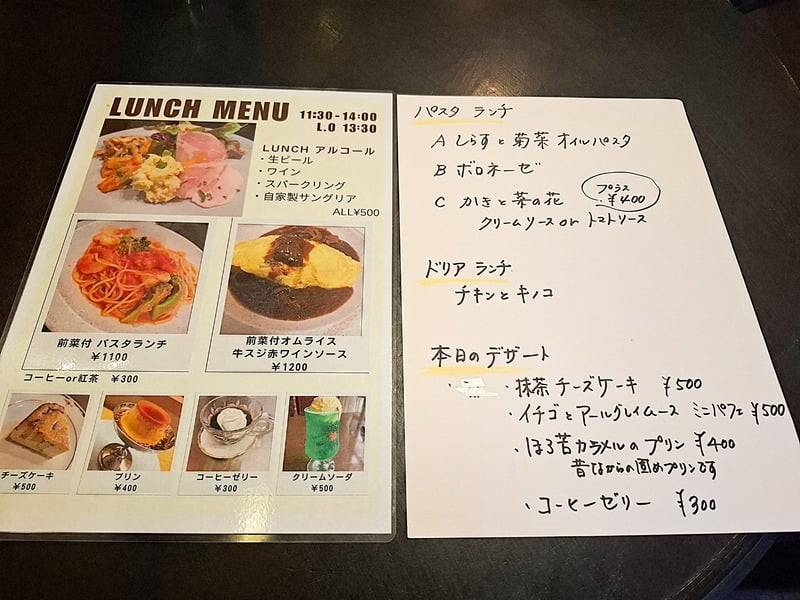 LUNCH MENU 11:30-14:00
L.O 13:30
LUNCH アルコール
・生ビール
・ワイン
・スパークリング
・自家製サングリア
ALL¥500
前菜付 パスタランチ
¥1100
前菜付オムライス
牛スジ赤ワインソース
¥1200
コーヒーor紅茶 ¥300
チーズケーキ
¥500
プリン
¥400
コーヒーゼリー
¥300
クリームソーダ
¥500
パスタ ランチ
A しらすと菊菜 オイルパスタ
B ボロネーゼ
C かきと菜の花
プラス
¥400
クリームソース or トマトソース
ドリア ランチ
チキンとキノコ
本日のデザート
・抹茶チーズケーキ ¥500
・イチゴとアールグレイムース ミニパフェ ¥500
・ほろ苦カラメルのプリン ¥400
昔ながらの固めプリンです
・コーヒーゼリー ¥300